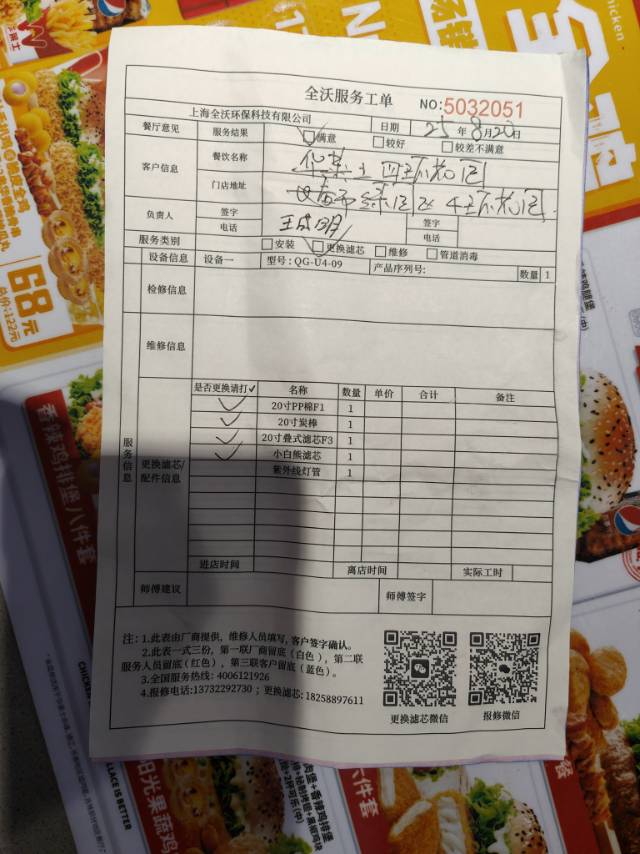 全沃服务工单
NO:5032051
上海全沃环保科技有限公司
日期 25年8月20日
餐厅意见 服务结果 满意 较好 较差不满意
客户信息 餐饮名称
门店地址
负责人 签字 签字
电话 电话
服务类别 安装 更换滤芯 维修 管道消毒
设备信息 设备一 型号: QG-U4-09 产品序列号: 数量 1
检修信息
维修信息
服务信息
更换滤芯/配件信息
是否更换请打✓ 名称 数量 单价 合计 备注
✓ 20寸PP棉F1 1
✓ 20寸炭棒 1
✓ 20寸叠式滤芯F3 1
✓ 小白熊滤芯 1
紫外线灯管 1
进店时间 离店时间 实际工时
师傅建议 师傅签字
注: 1.此表由厂商提供, 维修人员填写, 客户签字确认。
2.此表一式三份, 第一联厂商留底(白色), 第二联
服务人员留底(红色), 第三联客户留底(蓝色)。
3.全国服务热线: 4006121926
4.报修电话:13732292730 ; 更换滤芯: 18258897611
更换滤芯微信
报修微信
68元
香辣鸡排堡八件套
CHICKEN
LACE IS BETTER
阳光果蔬鸡